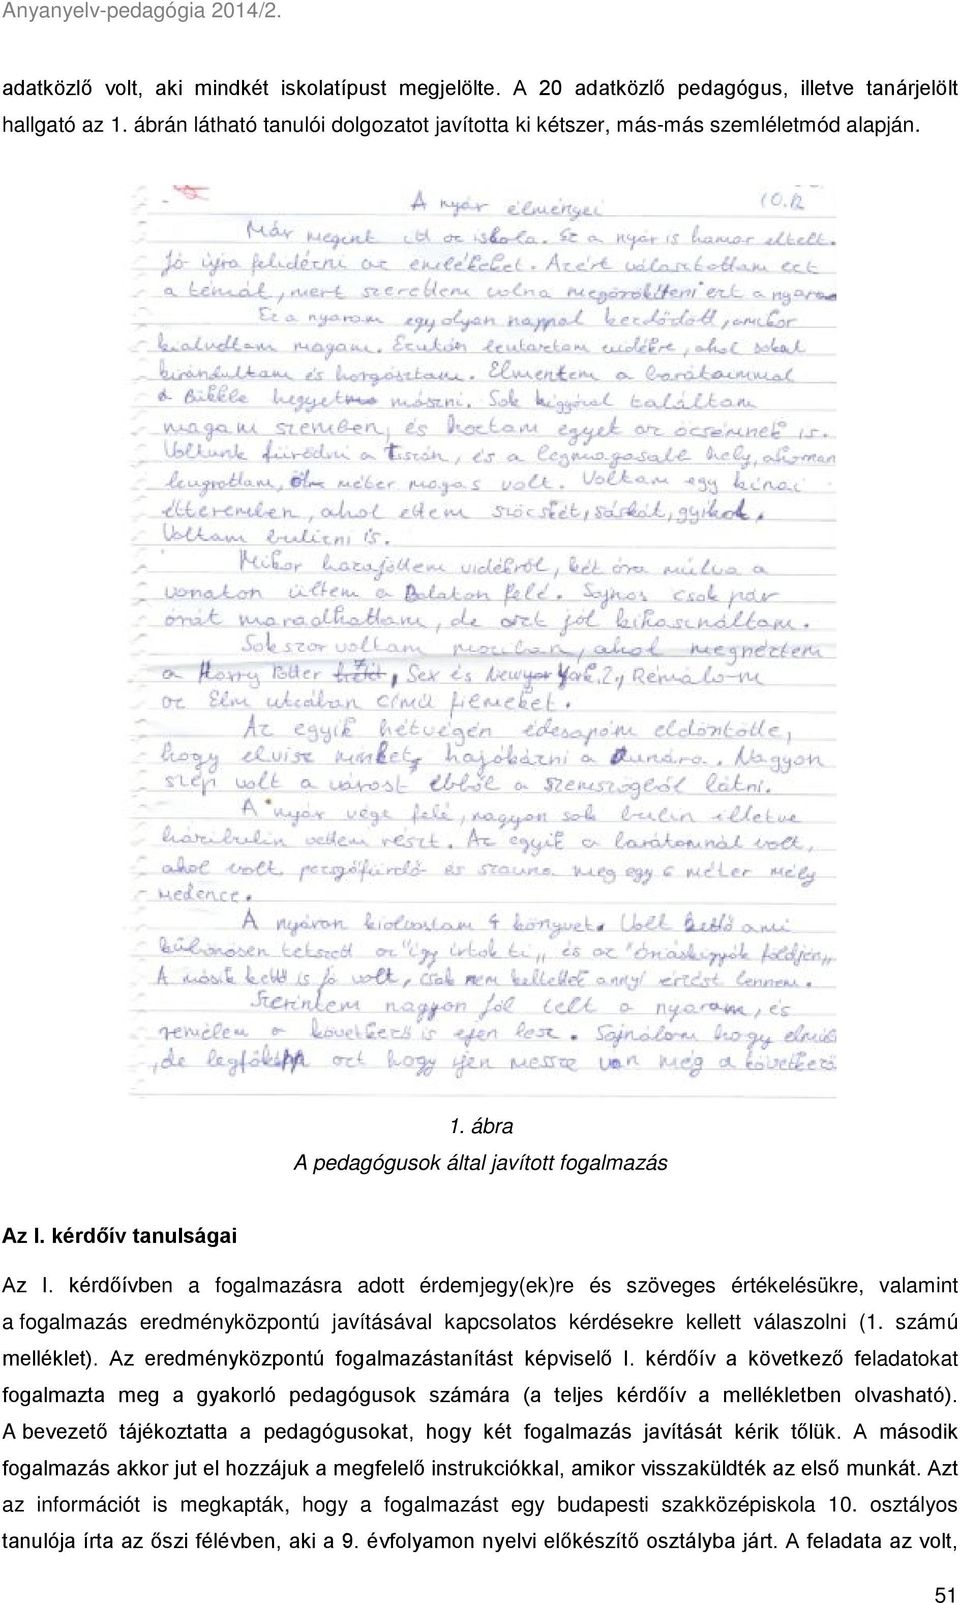 Anyanyelv-pedagógia 2014/2.
adatközlő volt, aki mindkét iskolatípust megjelölte. A 20 adatközlő pedagógus, illetve tanárjelölt
hallgató az 1. ábrán látható tanulói dolgozatot javította ki kétszer, más-más szemléletmód alapján.
A nyár élményei 10.B
Már megent itt az iskola. Ez a nyár is hamar eltelt.
Jó újra felidézni az emlékeket. Azért választottam ezt
a témát, mert szerettem volna megörökíteni ezt a nyaram
Ez a nyaram egy olyan nappal kezdődött, amikor
kialudtam magam. Ezután leutaztam vidékre, ahol sokat
kirándultam és horgásztam. Elmentem a barátaimmal
a Bükkbe hegyet mászni. Sok kigyóval találtam
magam szemben, és hoztam egyet az öcsémnek is.
Voltunk fürödni a Tiszán, és a legmagasabb hely, ahonnan
leugrottam, öt méter magas volt. Voltam egy kínai
étteremben, ahol ettem szöcskét, sáskát, gyíkot.
Voltam bulizni is.
Mikor hazajöttem vidékről, két óra múlva a
vonaton ültem a Balaton felé. Sajnos csak pár
órát maradhattam, de azt jól kihasználtam.
Sokszor voltam moziban, ahol megnéztem
a Harry Potter 7, Sex és New York 2, Rémálom
az Elm utcában című filmeket.
Az egyik hétvégén édesapám eldöntötte,
hogy elvisz minket hajókázni a Dunára. Nagyon
szép volt a várost ebből a szemszögből látni.
A nyár vége felé, nagyon sok bulin illetve
házibulin vettem részt. Az egyik a barátomnál volt,
ahol volt pezsgőfürdő és szauna meg egy 6 méter mély
medence.
A nyáron kiolvastam 4 könyvet. Volt kettő ami
különösen tetszett az "így írtok ti„ és az "Óriáskígyók földjén„
A másik kettő is jó volt, csak nem kellettek annyi érzést lennem.
Szerintem nagyon jól telt a nyaram, és
remélem a következő is ilyen lesz. Sajnálom hogy elmúlt
, de legfőképp azt hogy ilyen messze van még a következő
1. ábra
A pedagógusok által javított fogalmazás
Az I. kérdőív tanulságai
Az I. kérdőívben a fogalmazásra adott érdemjegy(ek)re és szöveges értékelésükre, valamint
a fogalmazás eredményközpontú javításával kapcsolatos kérdésekre kellett válaszolni (1. számú
melléklet). Az eredményközpontú fogalmazástanítást képviselő I. kérdőív a következő feladatokat
fogalmazta meg a gyakorló pedagógusok számára (a teljes kérdőív a mellékletben olvasható).
A bevezető tájékoztatta a pedagógusokat, hogy két fogalmazás javítását kérik tőlük. A második
fogalmazás akkor jut el hozzájuk a megfelelő instrukciókkal, amikor visszaküldték az első munkát. Azt
az információt is megkapták, hogy a fogalmazást egy budapesti szakközépiskola 10. osztályos
tanulója írta az őszi félévben, aki a 9. évfolyamon nyelvi előkészítő osztályba járt. A feladata az volt,
51